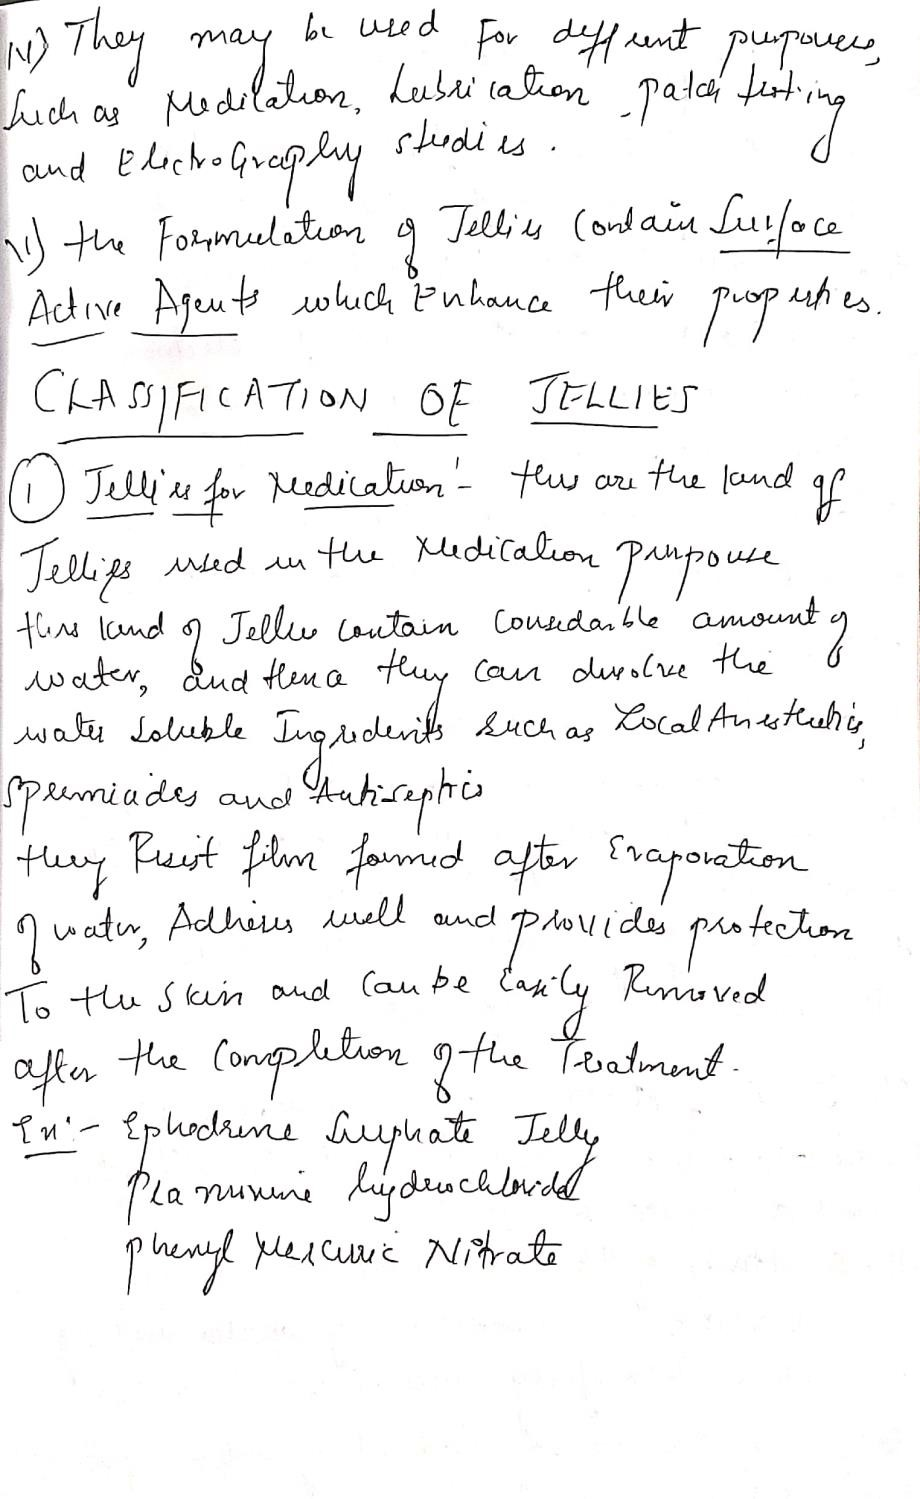 IV) They may be used For different purpouses,
Such as Medication, Lubrication, patch testing
and ElectroGraphy studies.
VI) the Formulation of Jellies Contain Surface
Active Agents which Enhance their properties.
CLASSIFICATION OF JELLIES
① Jellies for Medication:- this are the kind of
Jellies used in the Medication purpouse
this kind of Jellies contain Considarble amount of
water, and Hence they can dissolve the
water Soluble Ingredients such as Local Anesthetics,
Spermicides and Antiseptics
they Resist film formed after Evaporation
of water, Adheres well and provides protection
To the Skin and Can be Easily Removed
after the Completion of the Treatment.
Ex:- Ephedrine Sulphate Jelly
hydrochloride
phenyl Mercuric Nitrate